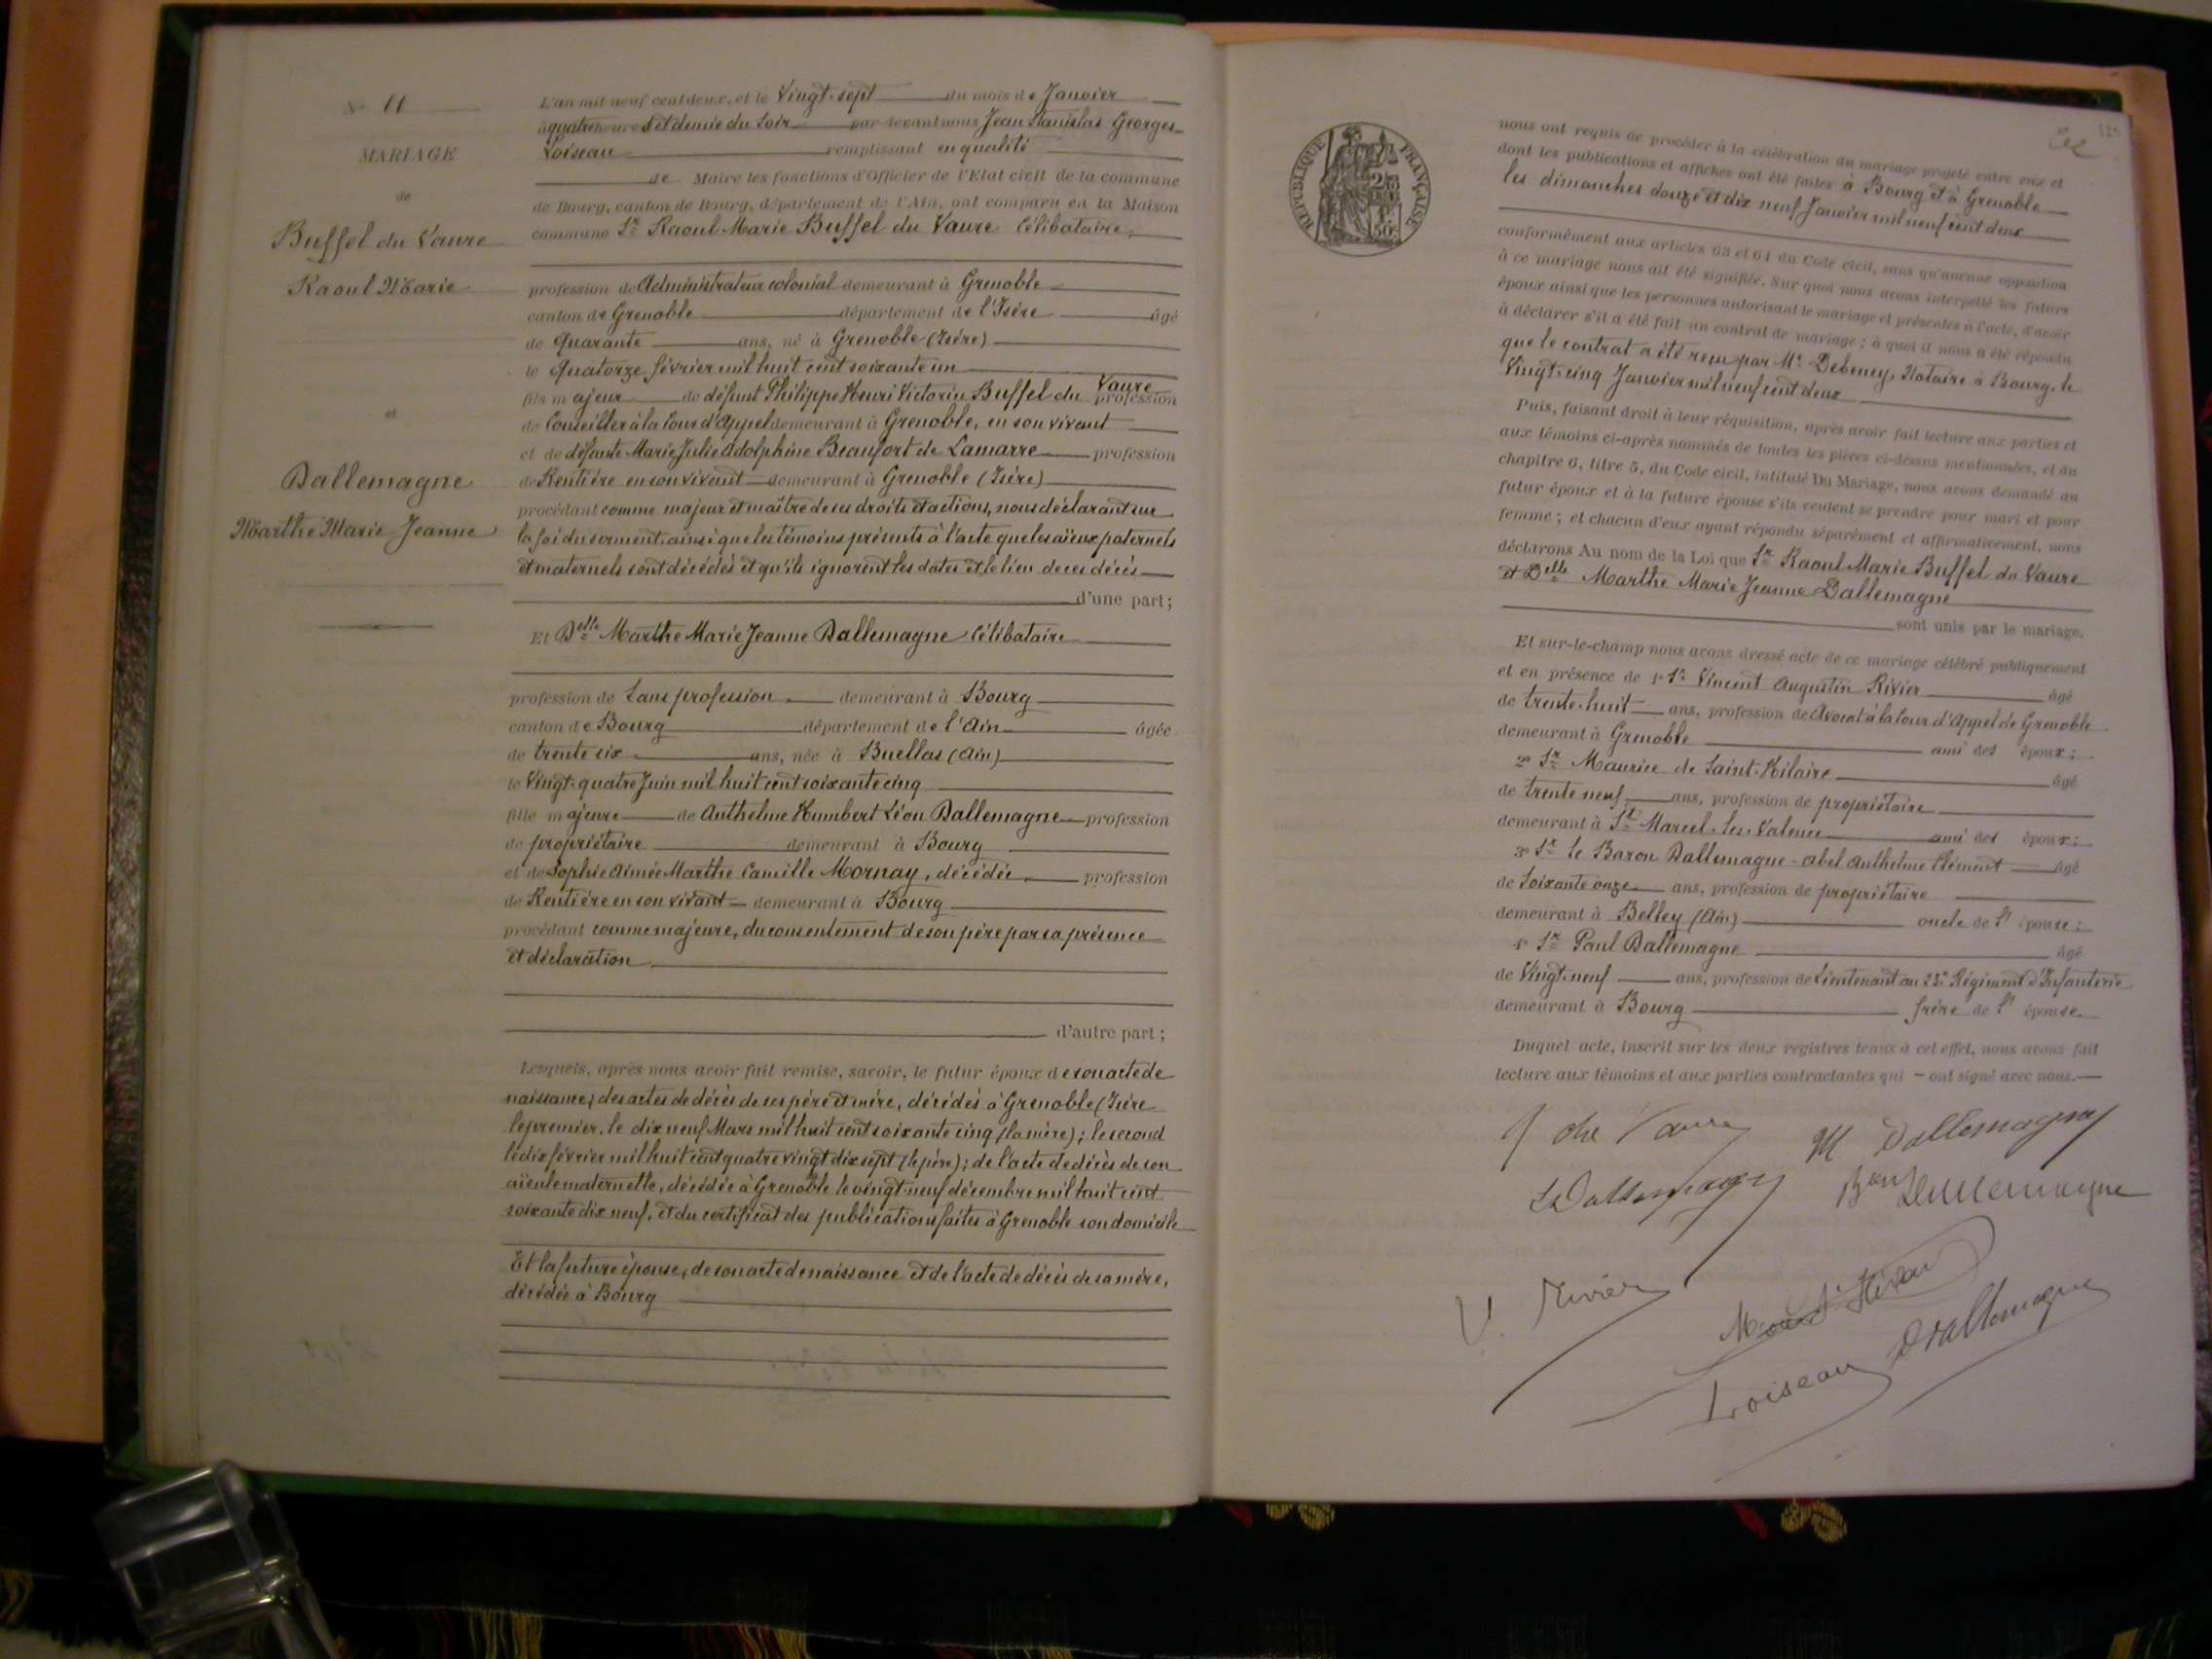 N° 11
MARIAGE
de
Buffel du Vaure
Raoul Marie
et
Dallemagne
Marthe Marie Jeanne
L'an mil neuf cent deux, et le Vingt-sept du mois de Janvier
à quatre heures et demie du soir par devant nous Jean Stanislas Georges
Loiseau remplissant en qualité
de Maire les fonctions d'Officier de l'Etat civil de la commune
de Bourg, canton de Bourg, département de l'Ain, ont comparu en la Maison
commune Sr Raoul Marie Buffel du Vaure Célibataire,
profession de Administrateur colonial demeurant à Grenoble
canton de Grenoble département de l'Isère âgé
de Quarante ans, né à Grenoble (Isère)
le Quatorze février mil huit cent soixante un
fils majeur de défunt Philippe Henri Victorin Buffel du Vaure profession
de Conseiller à la Cour d'Appel demeurant à Grenoble, en son vivant
et de défunte Marie Julie Adolphine Beaufort de Lamarre profession
de Rentière en son vivant demeurant à Grenoble (Isère)
procédant comme majeur et maître de ses droits et actions, nous déclarant sur
la foi du serment, ainsi que les témoins présents à l'acte que les aïeux paternels
et maternels sont décédés et qu'ils ignorent les dates et le lieu de ces décès
d'une part;
Et Delle Marthe Marie Jeanne Dallemagne Célibataire
profession de Sans profession demeurant à Bourg
canton de Bourg département de l'Ain âgée
de trente six ans, née à Buellas (Ain)
le Vingt-quatre Juin mil huit cent soixante cinq
fille majeure de Anthelme Humbert Léon Dallemagne profession
de propriétaire demeurant à Bourg
et de Sophie Aimée Marthe Camille Mornay, décédée profession
de Rentière en son vivant demeurant à Bourg
procédant comme majeure, du consentement de son père par sa présence
et déclaration
d'autre part;
Lesquels, après nous avoir fait remise, savoir, le futur époux de son acte de
naissance; des actes de décès de ses père et mère, décédés à Grenoble (Isère
le premier, le dix neuf Mars mil huit cent soixante cinq (la mère); le second
le dix février mil huit cent quatre vingt dix sept (le père); de l'acte de décès de son
aïeule maternelle, décédée à Grenoble le vingt-neuf décembre mil huit cent
soixante dix neuf, et du certificat des publications faites à Grenoble son domicile
Et la future épouse, de son acte de naissance et de l'acte de décès de sa mère,
décédée à Bourg
RÉPUBLIQUE FRANÇAISE
12
nous ont requis de procéder à la célébration du mariage projeté entre eux et
dont les publications et affiches ont été faites à Bourg et à Grenoble
les dimanches douze et dix neuf Janvier mil neuf cent deux
conformément aux articles 63 et 64 du Code civil, sans qu'aucune opposition
à ce mariage nous ait été signifiée. Sur quoi nous avons interpellé les futurs
époux ainsi que les personnes autorisant le mariage et présentes à l'acte, d'avoir
à déclarer s'il a été fait un contrat de mariage; à quoi il nous a été répondu
que le contrat a été reçu par Me Debeney, Notaire à Bourg, le
Vingt-cinq Janvier mil neuf cent deux
Puis, faisant droit à leur réquisition, après avoir fait lecture aux parties et
aux témoins ci-après nommés de toutes les pièces ci-dessus mentionnées, et du
chapitre 6, titre 5, du Code civil, intitulé Du Mariage, nous avons demandé au
futur époux et à la future épouse s'ils veulent se prendre pour mari et pour
femme; et chacun d'eux ayant répondu séparément et affirmativement, nous
déclarons Au nom de la Loi que Sr Raoul Marie Buffel du Vaure
et Delle Marthe Marie Jeanne Dallemagne
sont unis par le mariage.
Et sur-le-champ nous avons dressé acte de ce mariage célébré publiquement
et en présence de 1° Sr Vincent Augustin Rivier âgé
de trente-huit ans, profession de Avocat à la Cour d'Appel de Grenoble
demeurant à Grenoble ami des époux;
2° Sr Maurice de Saint-Hilaire âgé
de trente neuf ans, profession de propriétaire
demeurant à St Marcel-les-Valence ami des époux;
3° Sr le Baron Dallemagne-Abel Anthelme Clément âgé
de Soixante onze ans, profession de propriétaire
demeurant à Belley (Ain) oncle de l'épouse;
4° Sr Paul Dallemagne âgé
de Vingt-neuf ans, profession de Lieutenant au 23e Régiment d'Infanterie
demeurant à Bourg frère de l'épouse.
Duquel acte, inscrit sur les deux registres tenus à cet effet, nous avons fait
lecture aux témoins et aux parties contractantes qui ont signé avec nous.
du Vaure
M Dallemagne
Dallemagne
Bon Dallemagne
V. Rivier
Dallemagne
Loiseau